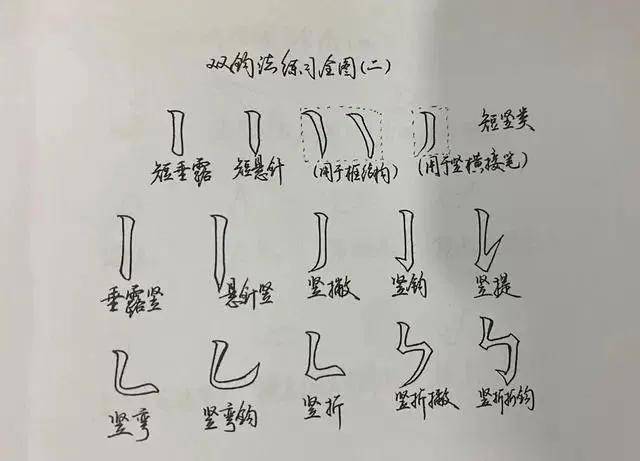 双钩法练习全图(二)
短垂露 短悬针 (用于框结构) (用于竖横接笔) 短竖类
垂露竖 悬针竖 竖撇 竖钩 竖提
竖弯 竖弯钩 竖折 竖折撇 竖折折钩